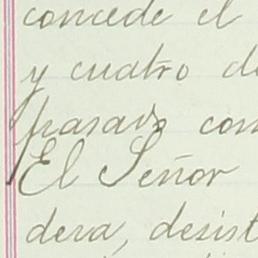 concede el
y cuatro de
pasado con
El Señor
dera, desist